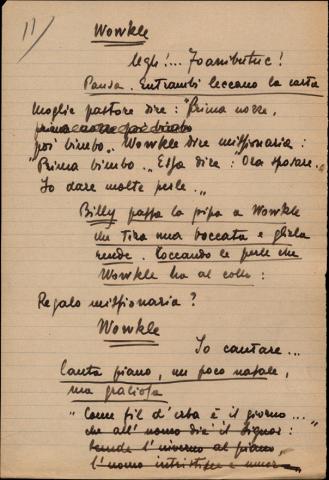 11)
Wowkle
Ugh!... 
Pausa. Entrambi leccano la carta
Moglie pastore dire: "Prima nozze,
prima nozze poi bimbo
poi bimbo". Wowkle dire missionaria:
"Prima bimbo". Essa dire: "Ora sposare.
Io dare molte perle."
Billy passa la pipa a Wowkle
che tira una boccata e gliela
rende. Toccando le perle che
Wowkle ha al collo:
Regalo missionaria?
Wowkle
Io cantare...
Canta piano, un poco nasale,
ma graliosa
"Come fil d'erba è il giorno..."
che all'uomo diè il Signor:
scende l'inverno al piano,
l'uomo intristisce e muor